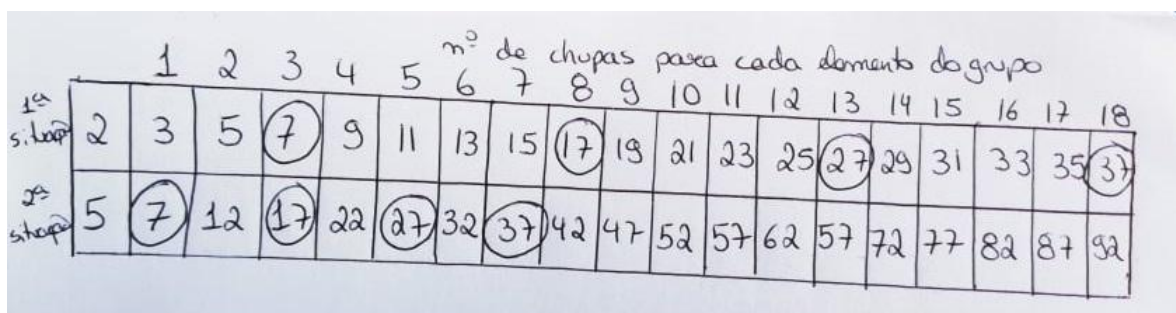 nº de chupas para cada elemento do grupo
1 2 3 4 5 6 7 8 9 10 11 12 13 14 15 16 17 18
1ª situação 2 3 5 7 9 11 13 15 17 19 21 23 25 27 29 31 33 35 37
2ª situação 5 7 12 17 22 27 32 37 42 47 52 57 62 57 72 77 82 87 92